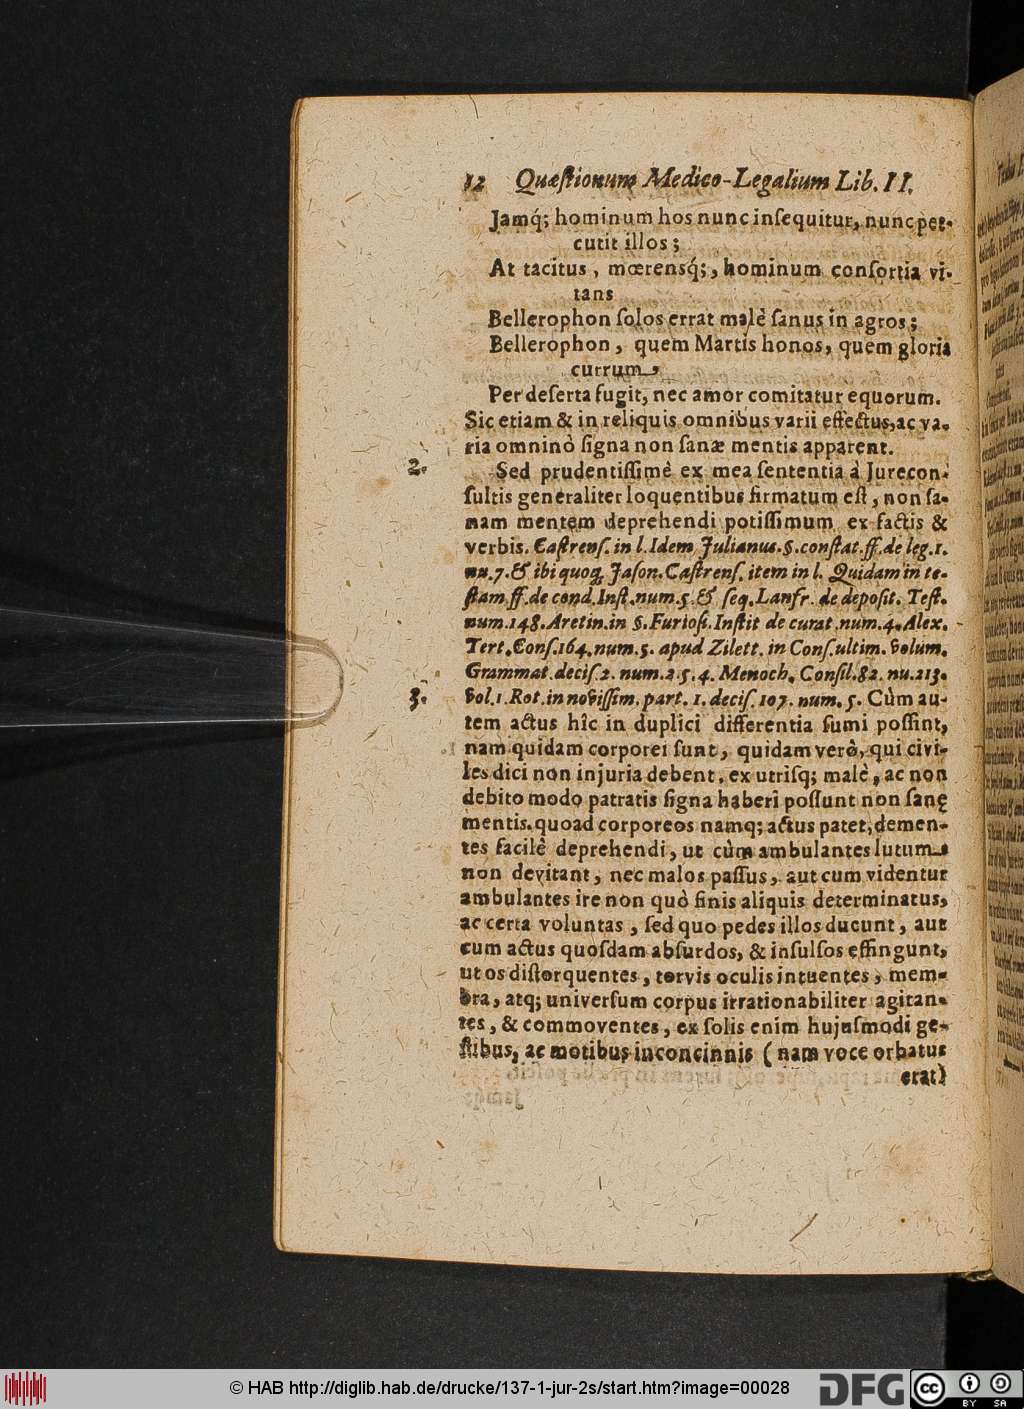 12 Quæſtionum Medico-Legalium Lib. II.
Jamq́; hominum hos nunc inſequitur, nunc per-
cutit illos;
At tacitus, mœrensq́;, hominum conſortia vi-
tans
Bellerophon ſolos errat malè ſanus in agros;
Bellerophon, quem Martis honos, quem gloria
currum,
Per deſerta fugit, nec amor comitatur equorum.
Sic etiam & in reliquis omnibus varii effectus, ac va-
ria omninò ſigna non ſanæ mentis apparent.
2. Sed prudentiſſimè ex mea ſententia à Jurecon-
ſultis generaliter loquentibus firmatum eſt, non ſa-
nam mentem deprehendi potiſſimum ex factis &
verbis. Caſtrenſ. in l. Idem Julianus. §. conſtat. ff. de leg. 1.
nu. 7. & ibi quoq; Jaſon. Caſtrenſ. item in l. Quidam in te-
ſtam. ff. de cond. Inſt. num. 5. & ſeq. Lanfr. de depoſit. Teſt.
num. 148. Aretin. in §. Furioſi. Inſtit de curat. num. 4. Alex.
Tert. Conſ. 164. num. 5. apud Zilett. in Conſ. ultim. volum.
Grammat. deciſ. 2. num. 2. 5. 4. Menoch. Conſil. 82. nu. 213.
3. vol. 1. Rot. in noviſſim. part. 1. deciſ. 107. num. 5. Cùm au-
tem actus hîc in duplici differentia ſumi poſſint,
nam quidam corporei ſunt, quidam verò, qui civi-
les dici non injuria debent. ex utriſq; malè, ac non
debito modo patratis ſigna haberi poſſunt non ſanę
mentis. quoad corporeos namq; actus patet, demen-
tes facilè deprehendi, ut cùm ambulantes lutum
non devitant, nec malos paſſus, aut cum videntur
ambulantes ire non quò finis aliquis determinatus,
ac certa voluntas, ſed quo pedes illos ducunt, aut
cum actus quoſdam abſurdos, & inſulſos effingunt,
ut os diſtorquentes, torvis oculis intuentes, mem-
bra, atq; univerſum corpus irrationabiliter agitan-
tes, & commoventes, ex ſolis enim hujuſmodi ge-
ſtibus, ac motibus inconcinnis (nam voce orbatus
erat)
© HAB http://diglib.hab.de/drucke/137-1-jur-2s/start.htm?image=00028
DFG
cc BY SA